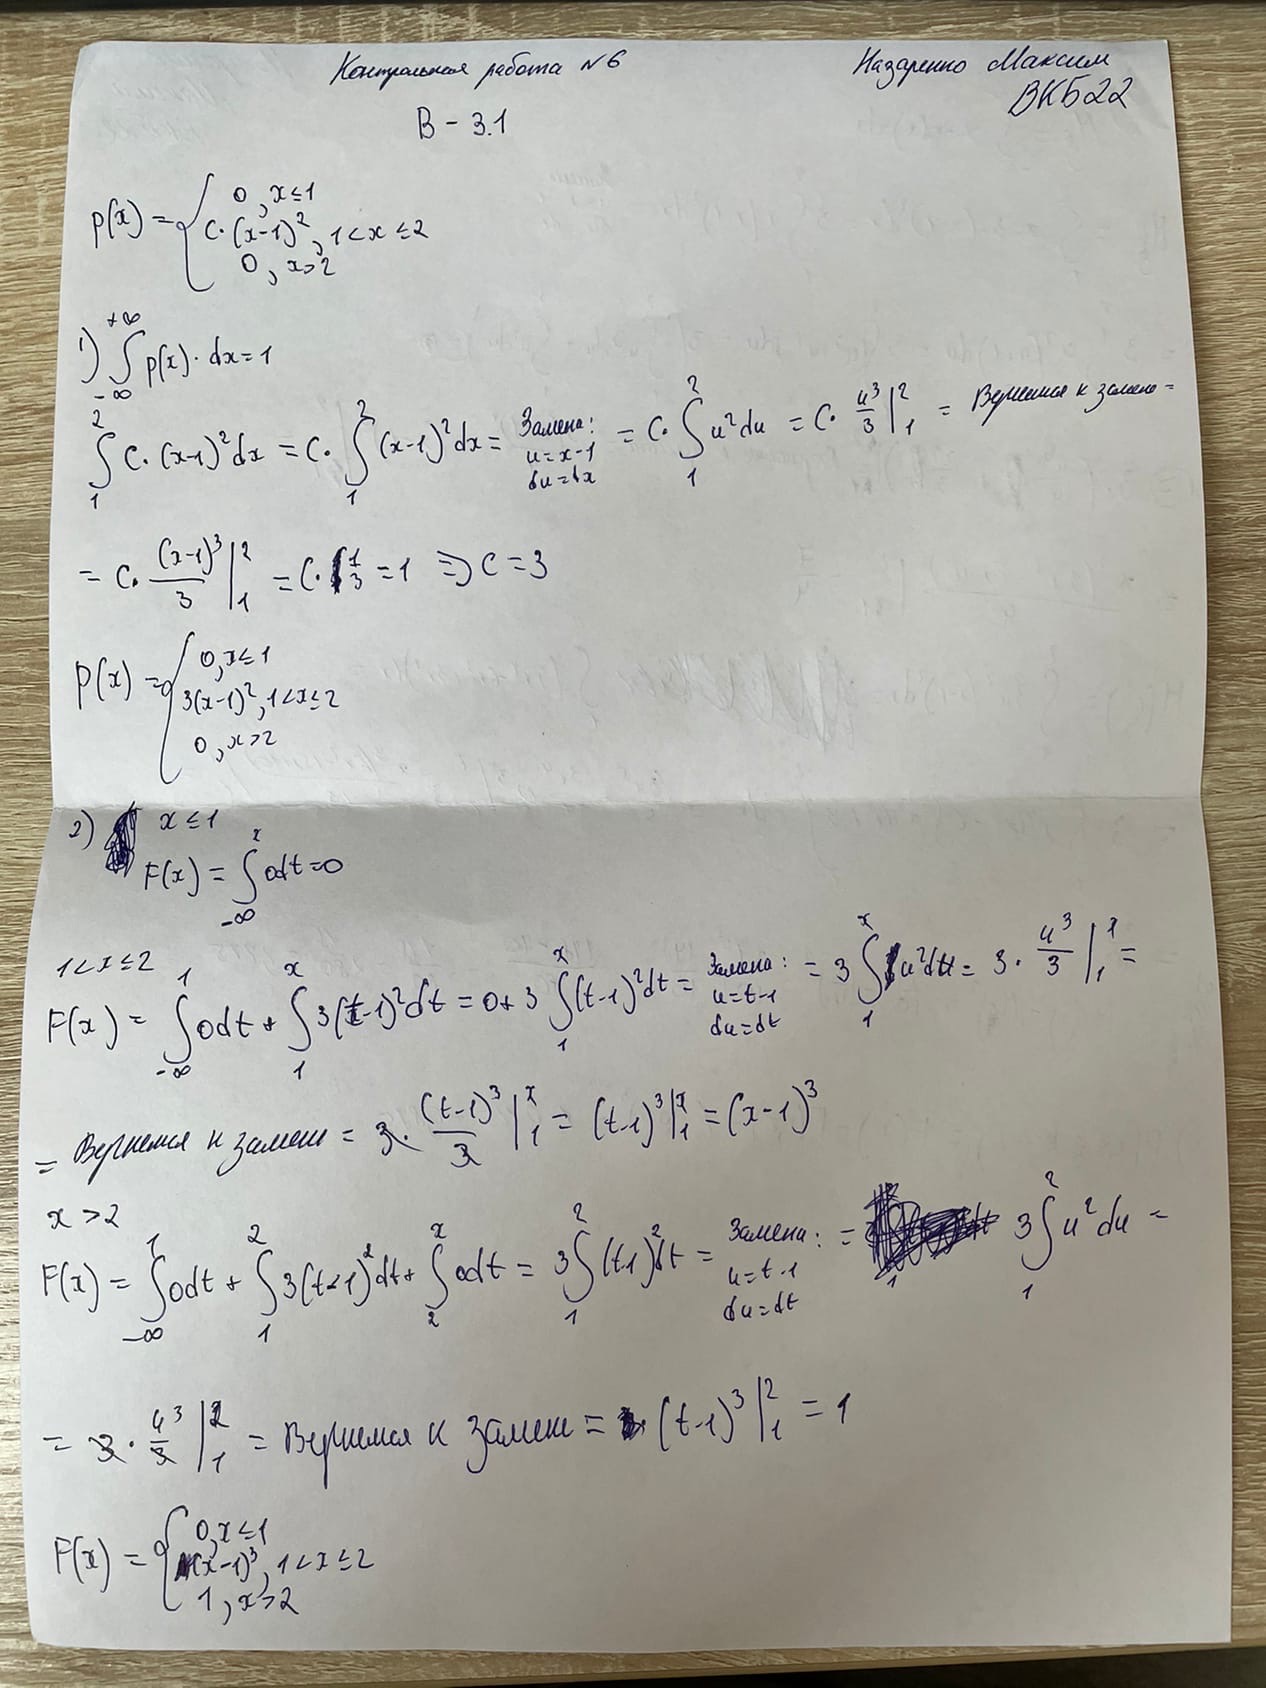 Контрольная работа №6
Назаренко Максим
ВКБ22
В - 3.1
p(x) = { 0, x ≤ 1
C·(x-1)², 1 < x ≤ 2
0, x > 2
1) ∫_{-∞}^{+∞} p(x)·dx = 1
∫_1^2 C·(x-1)²dx = C·∫_1^2 (x-1)²dx = Замена: u=x-1 du=dx = C·∫_1^2 u²du = C· u³/3 |_1^2 = Вернемся к замене =
= C· (x-1)³/3 |_1^2 = C· 1/3 = 1 ⇒ C = 3
p(x) = { 0, x ≤ 1
3(x-1)², 1 < x ≤ 2
0, x > 2
2) x ≤ 1
F(x) = ∫_{-∞}^x 0dt = 0
1 < x ≤ 2
F(x) = ∫_{-∞}^1 0dt + ∫_1^x 3(t-1)²dt = 0 + 3∫_1^x (t-1)²dt = Замена: u=t-1 du=dt = 3∫_1^x u²du = 3· u³/3 |_1^x =
= Вернемся к замене = 3· (t-1)³/3 |_1^x = (t-1)³|_1^x = (x-1)³
x > 2
F(x) = ∫_{-∞}^1 0dt + ∫_1^2 3(t-1)²dt + ∫_2^x 0dt = 3∫_1^2 (t-1)²dt = Замена: u=t-1 du=dt = 3∫_1^2 u²du =
= 3· u³/3 |_1^2 = Вернемся к замене = (t-1)³|_1^2 = 1
F(x) = { 0, x ≤ 1
(x-1)³, 1 < x ≤ 2
1, x > 2